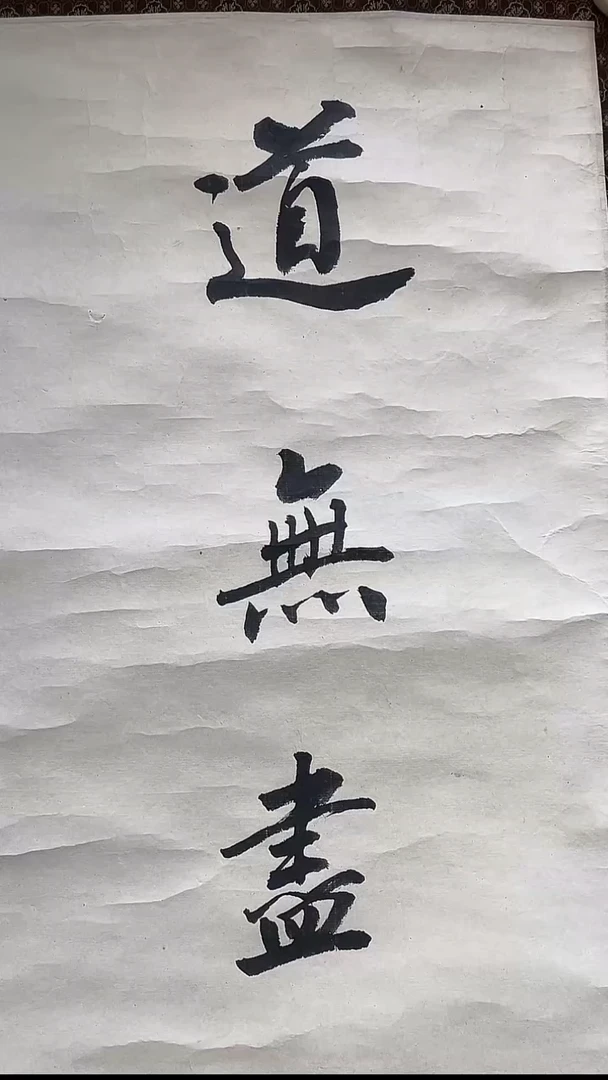 道無盡